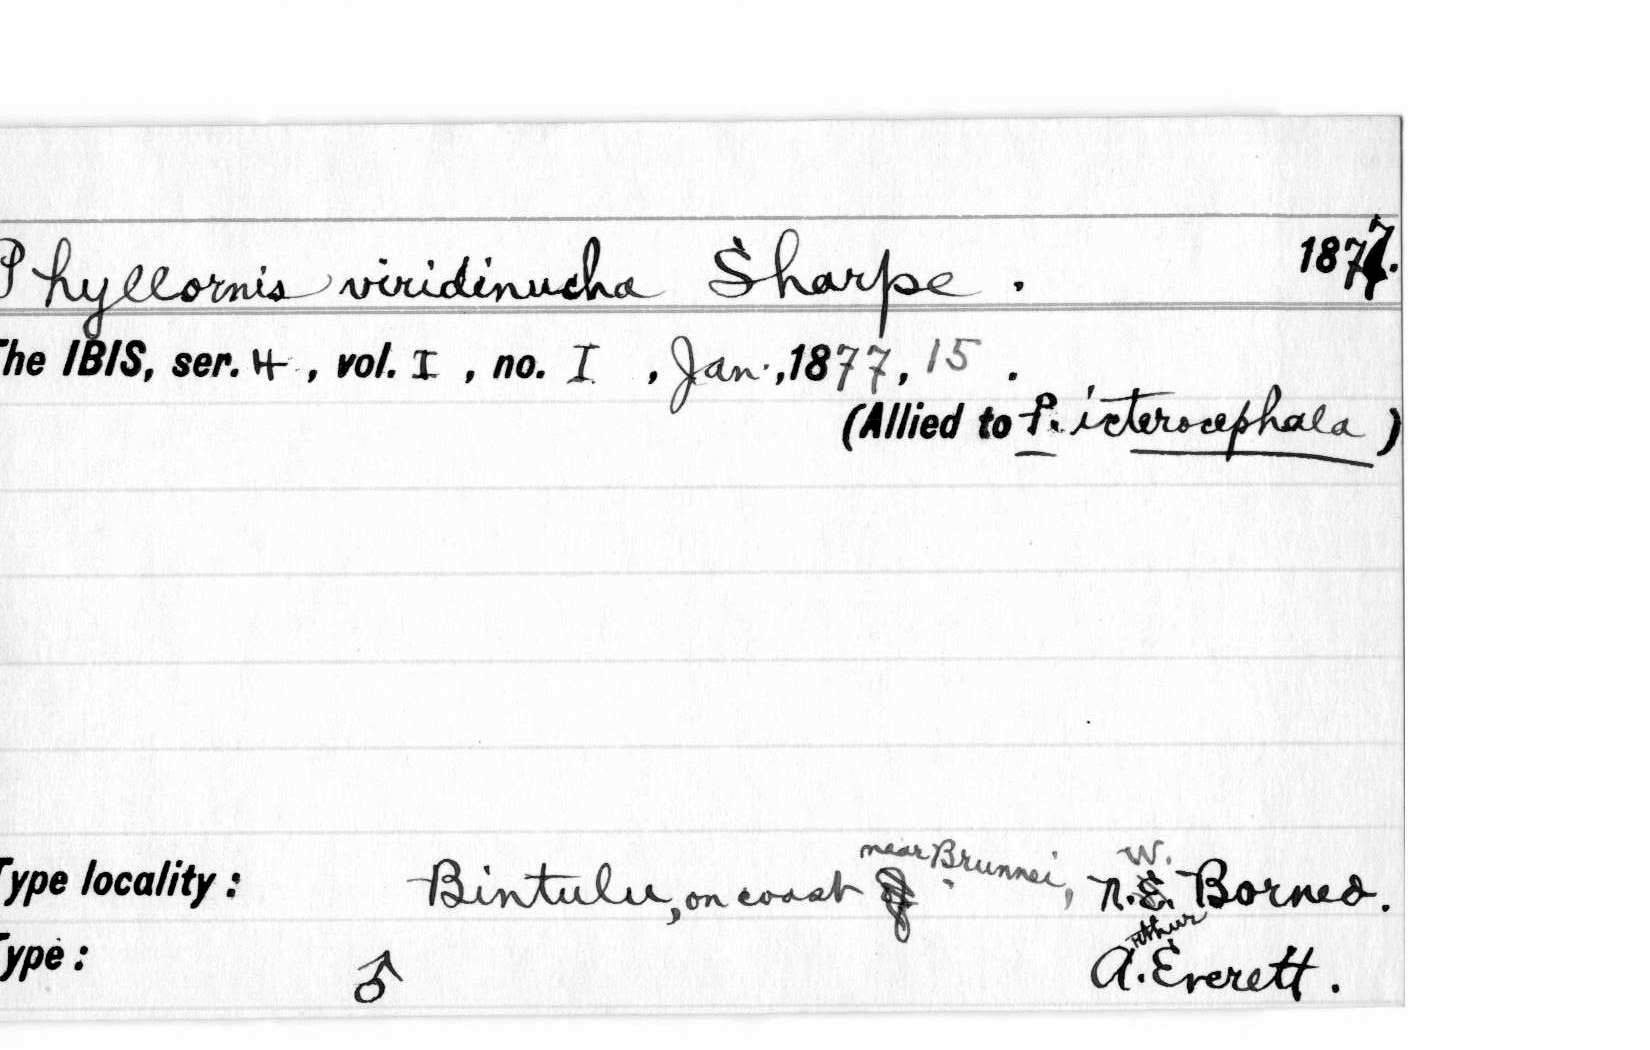 Phyllornis viridinucha Sharpe. 1877.
The IBIS, ser. 4, vol. I, no. I, Jan., 1877, 15.
(Allied to P. icterocephala)
near Brunnei, W.
Type locality: Bintulu, on coast N. Borneo.
Arthur
Type: ♂ A. Everett.